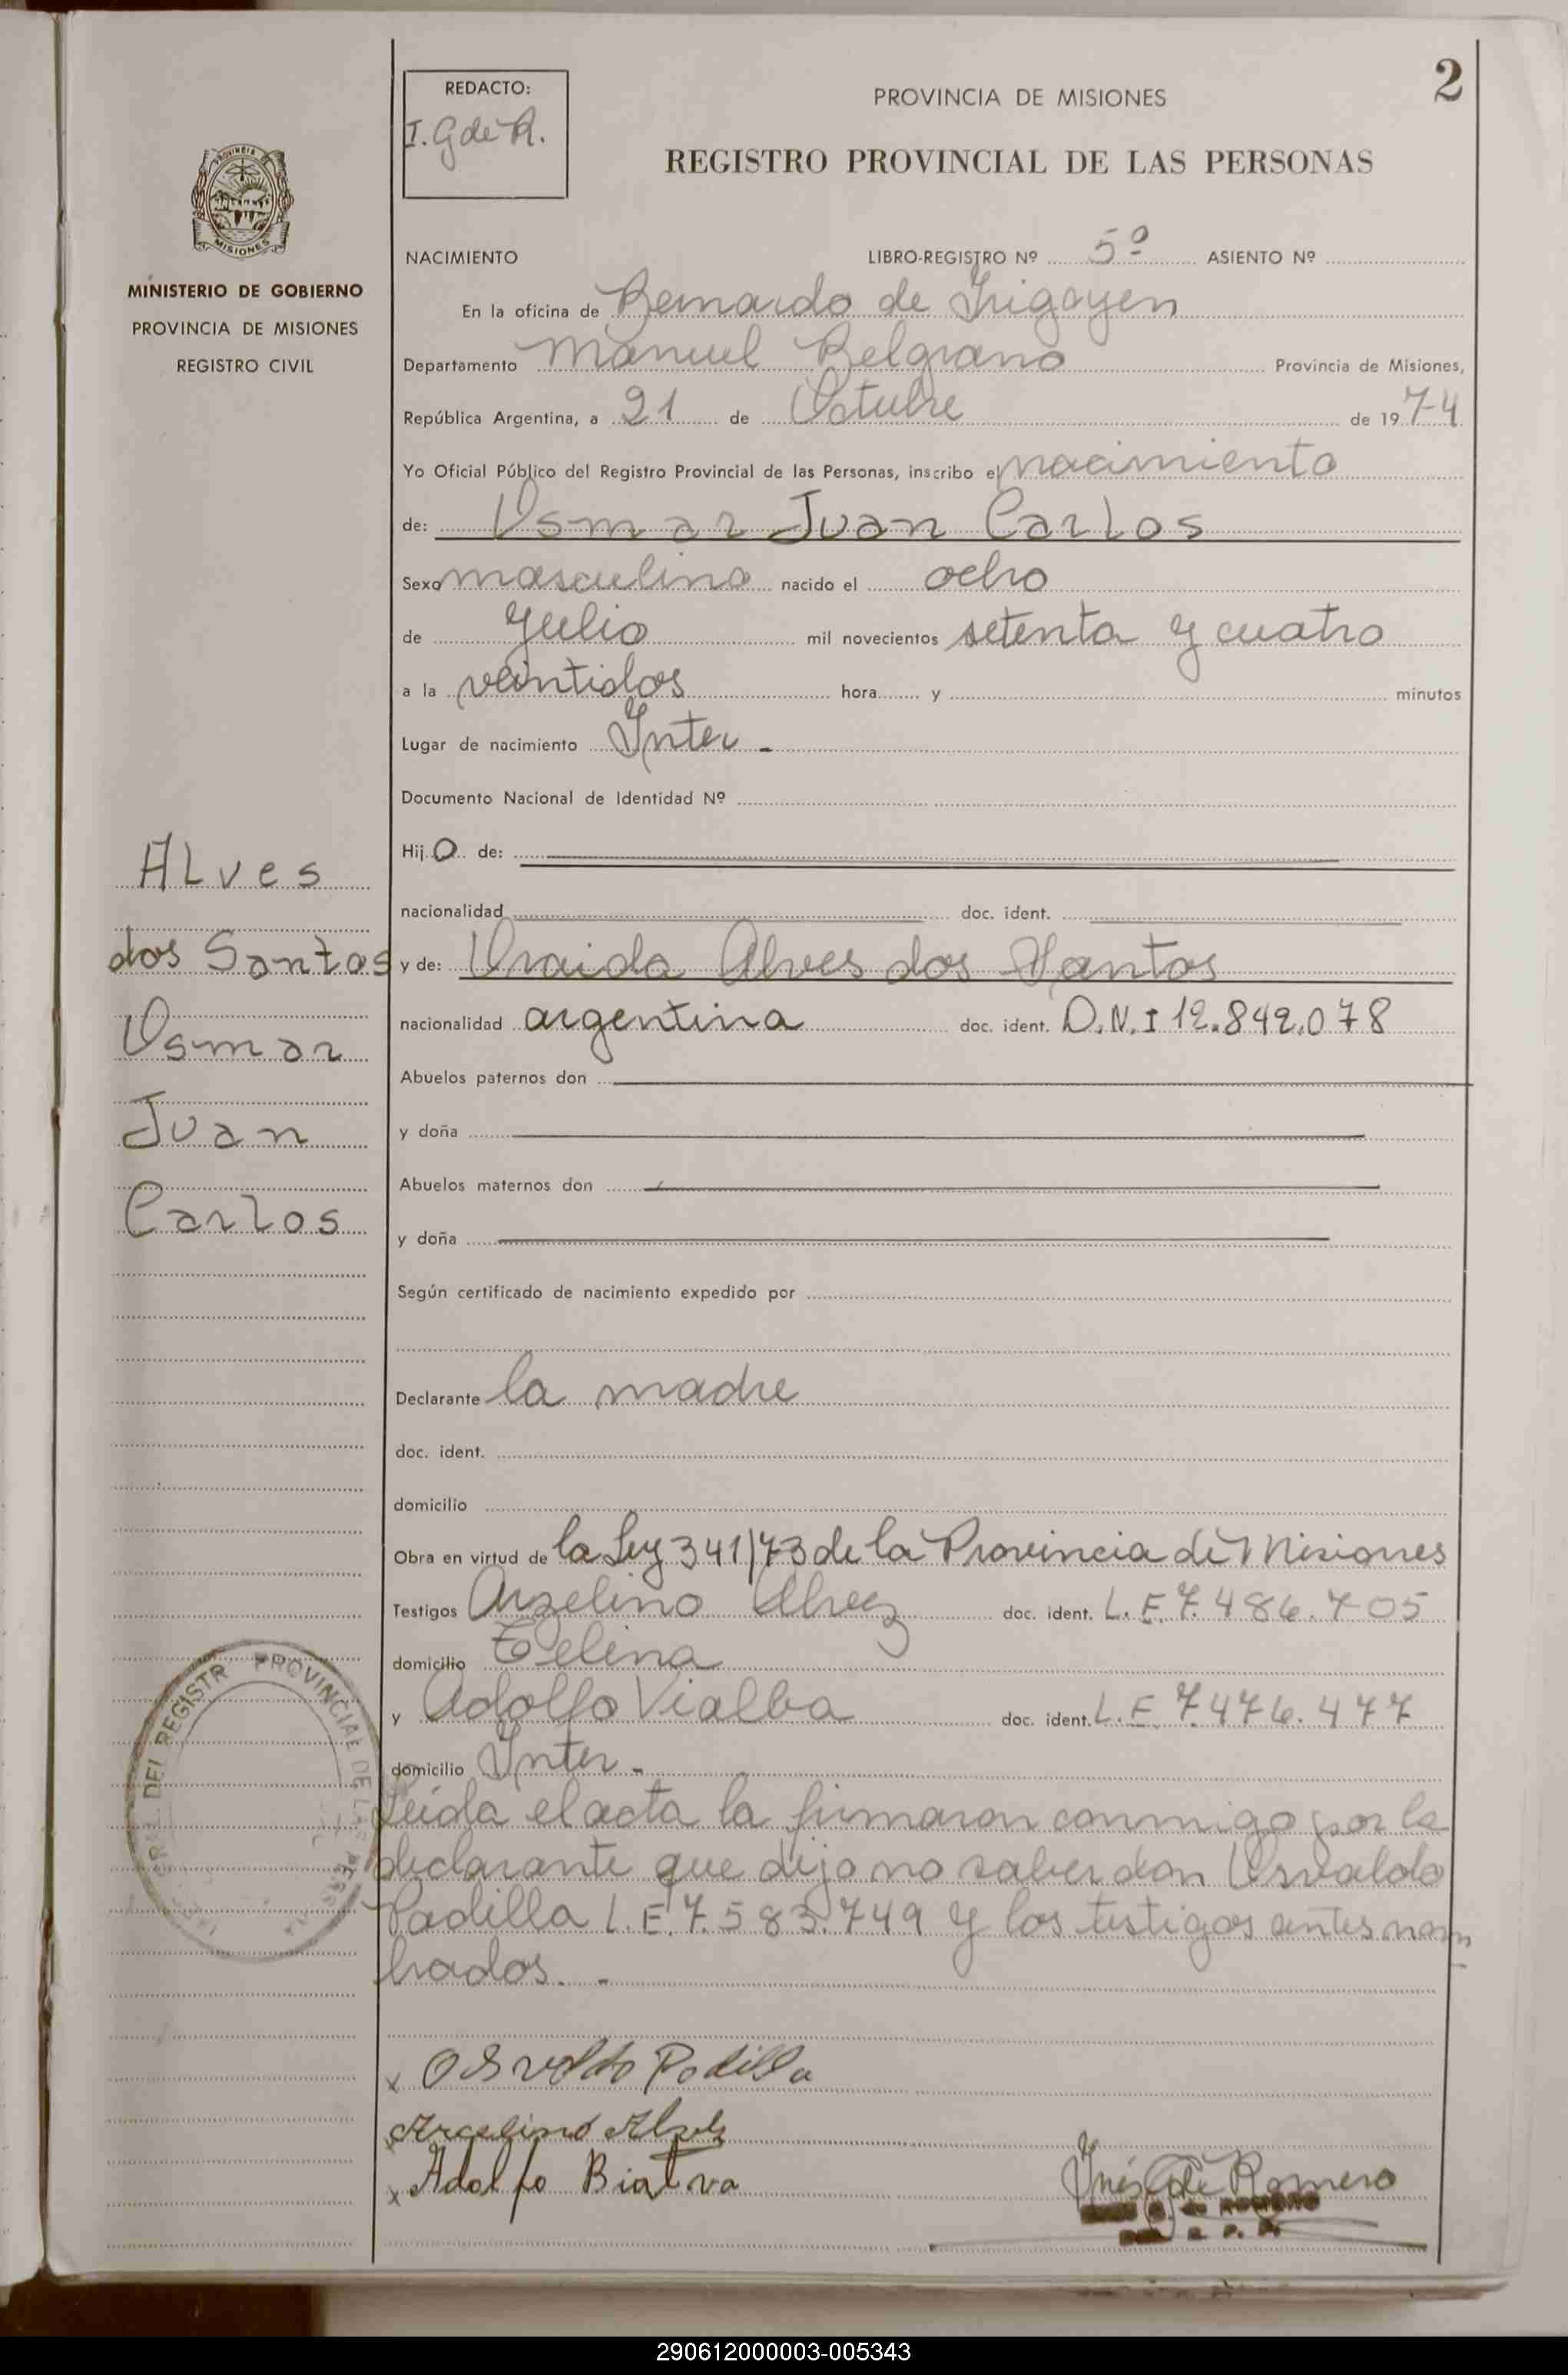 2
REDACTO:
I. G de R.
PROVINCIA DE MISIONES
REGISTRO PROVINCIAL DE LAS PERSONAS
PROVINCIA DE
MISIONES
MINISTERIO DE GOBIERNO
PROVINCIA DE MISIONES
REGISTRO CIVIL
NACIMIENTO LIBRO-REGISTRO Nº 5º ASIENTO Nº
En la oficina de Bernardo de Irigoyen
Departamento Manuel Belgrano Provincia de Misiones,
República Argentina, a 21 de Octubre de 1974
Yo Oficial Público del Registro Provincial de las Personas, inscribo el nacimiento
de: Osmar Juan Carlos
Sexo masculino nacido el ocho
de Julio mil novecientos setenta y cuatro
a la veintidos hora y minutos
Lugar de nacimiento Inter -
Documento Nacional de Identidad Nº
Hijo de:
nacionalidad doc. ident.
Alves
dos Santos
Osmar
Juan
Carlos
y de: Oraida Alves dos Santos
nacionalidad argentina doc. ident. D.N.I 12.842.078
Abuelos paternos don
y doña
Abuelos maternos don
y doña
Según certificado de nacimiento expedido por
Declarante la madre
doc. ident.
domicilio
Obra en virtud de la Ley 341/73 de la Provincia de Misiones
Testigos Arzelino Alvez doc. ident. L.E. 7.486.705
domicilio
y Adolfo Vialba doc. ident. L.E. 7.476.477
domicilio Inter -
Leida el acta la firmaron conmigo por la
declarante que dijo no saber don Osvaldo
Padilla L.E. 7.583.749 y los testigos antes nom
brados. -
DEL REGISTR PROVINCIAL DE LAS PERSONAS
x Osvaldo Padilla
x Arcelino
x Adolfo
Inés G de Romero
290612000003-005343